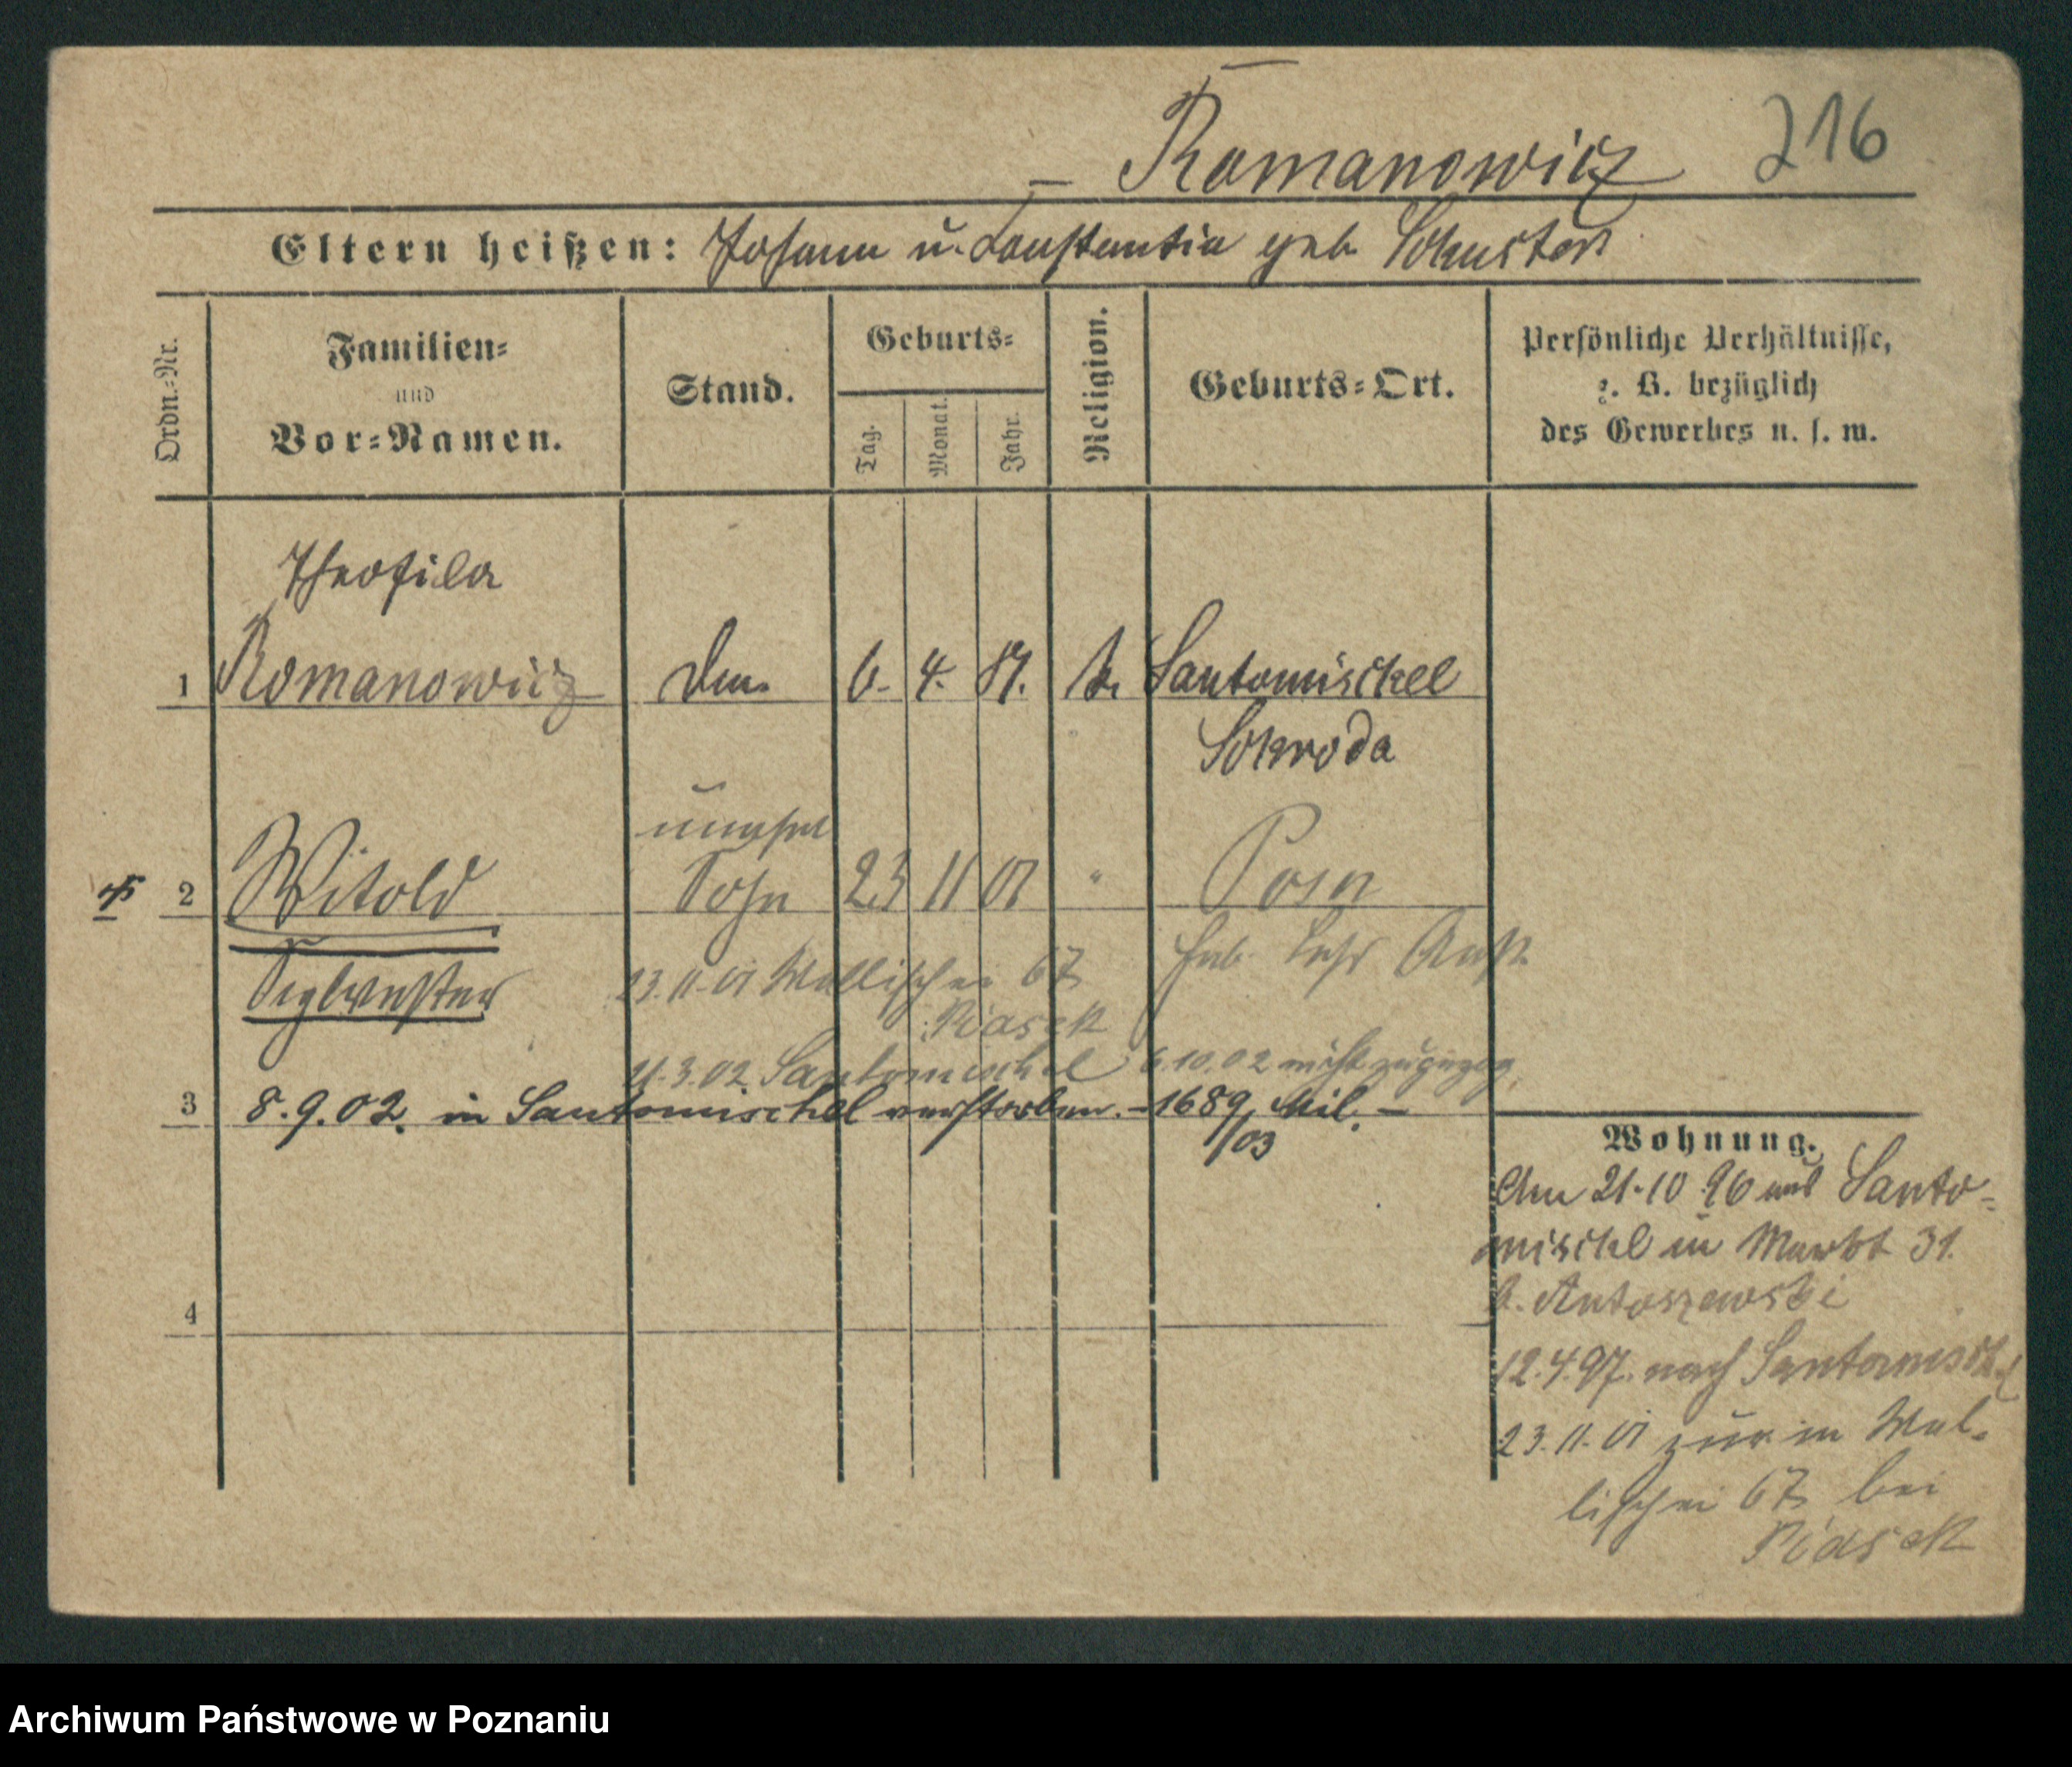 Romanowicz 216
Eltern heißen: Johann u. Constantia geb Schuster
Ordn.-Nr.
Familien-
und
Vor-Namen.
Stand.
Geburts-
Tag.
Monat.
Jahr.
Religion.
Geburts-Ort.
Persönliche Verhältnisse,
z. B. bezüglich
des Gewerbes u. s. w.
Theofila
1 Romanowicz 6. 4. k. Santomischel
Schroda
unehel
2 Witold Sohn 23 11 01 " Posen
Sylvester
23.11.01 Wallischei 67 Heb. Lehr Anst.
Piasek
3.02 Santomischel 6.10.02 nicht zugezog.
3 8.9.02. in Santomischel verstorben. - 1689/03 Mil. -
4
Wohnung.
Am 21.10 96 aus Santo-
mischel in Markt 31.
b. Antoszewski
12.4.97. nach Santomischel
23.11.01 zur. in Wal-
lischei 67 bei
Piasek
Archiwum Państwowe w Poznaniu